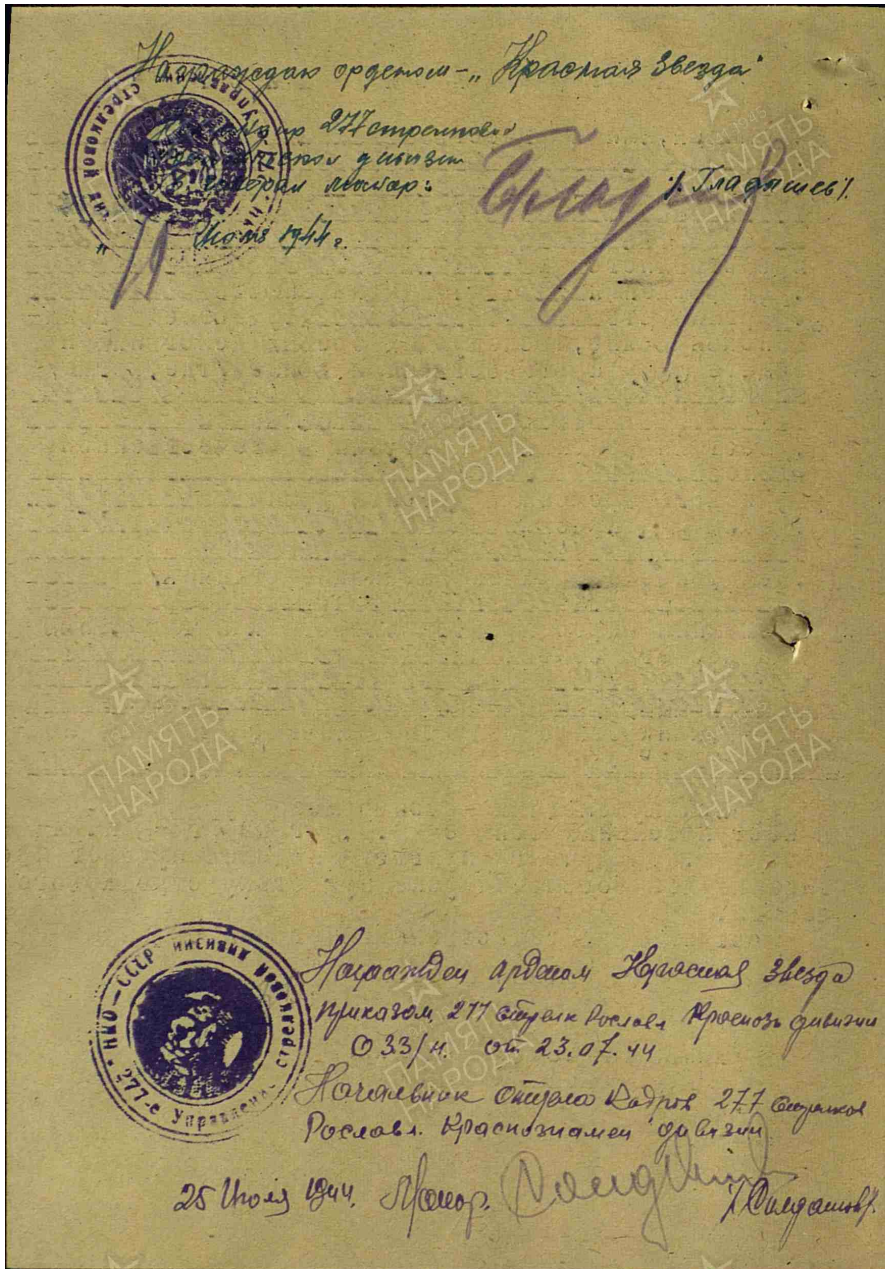 Награждаю орденом - „Красная Звезда"
Командир 277 стрелковой
дивизии
генерал майор:
/. Гладышев/.
Июля 1944 г.
ПАМЯТЬ
НАРОДА
ПАМЯТЬ
НАРОДА
ПАМЯТЬ
НАРОДА
НКО-СССР
277-е Управление стрелковой
Награжден орденом Красная Звезда
приказом 277 стрелк Рославл Краснозн дивизии
033/н. от 23.07.44
Начальник отдела Кадров 277 Стрелков
Рославл. Краснознамен дивизии
25 Июля 1944. Майор.